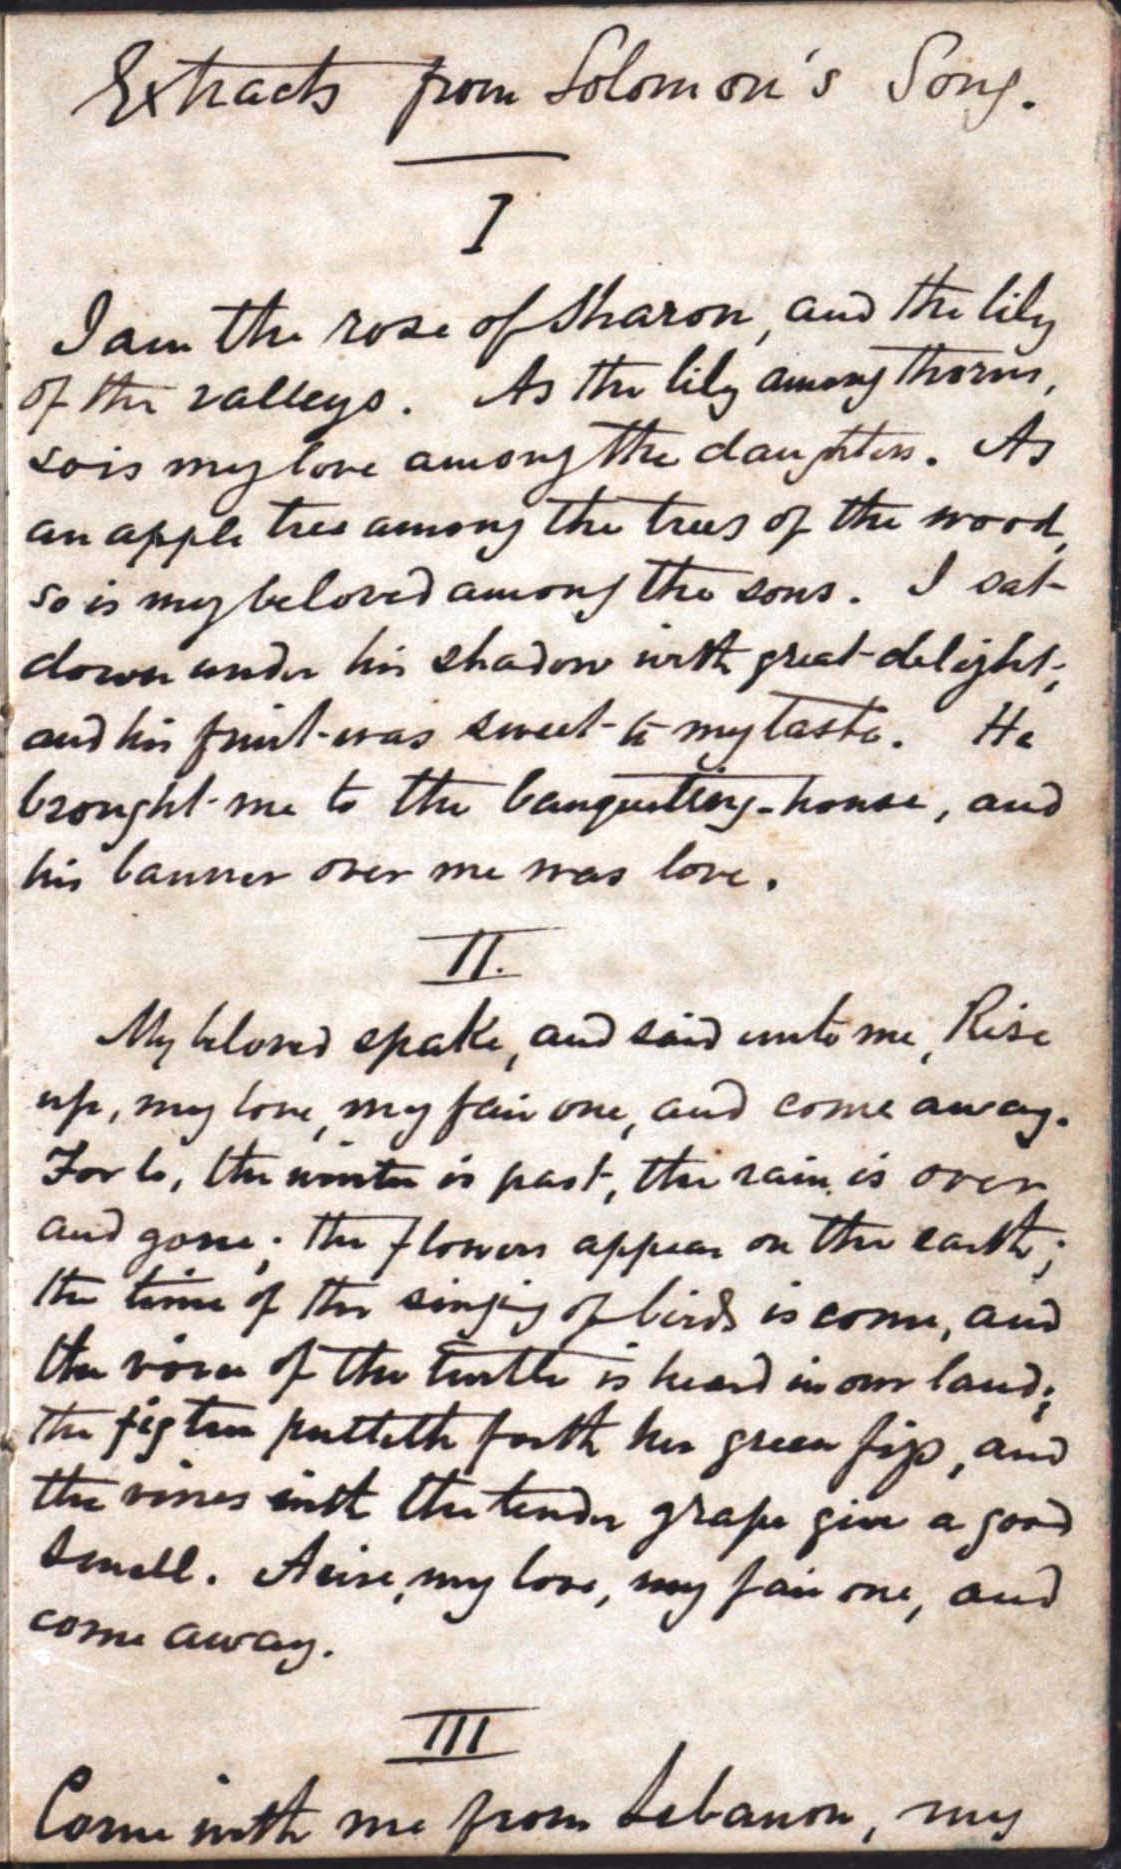 Extracts from Solomon's Song.
I
I am the rose of Sharon, and the lily
of the valleys. As the lily among thorns,
so is my love among the daughters. As
an apple tree among the trees of the wood,
so is my beloved among the sons. I sat
down under his shadow with great delight,
and his fruit was sweet to my taste. He
brought me to the banqueting-house, and
his banner over me was love.
II.
My beloved spake, and said unto me, Rise
up, my love, my fair one, and come away.
For lo, the winter is past, the rain is over
and gone; the flowers appear on the earth;
the time of the singing of birds is come, and
the voice of the turtle is heard in our land;
the fig tree putteth forth her green figs, and
the vines with the tender grape give a good
smell. Arise, my love, my fair one, and
come away.
III
Come with me from Lebanon, my